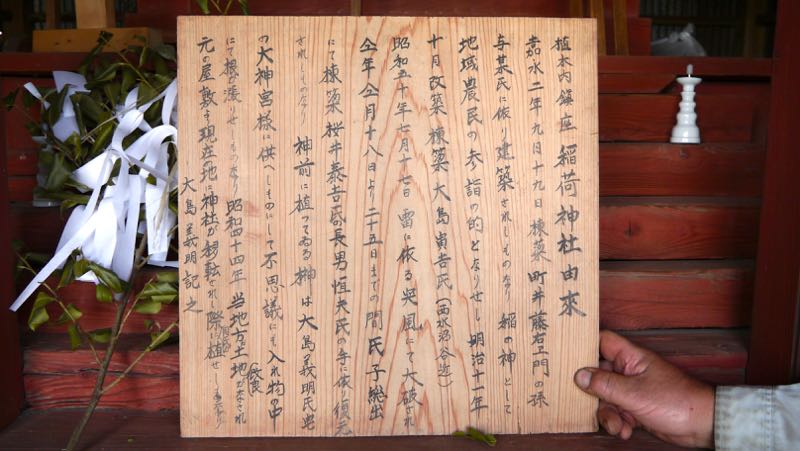 植木内鎮座 稲荷神社由来
嘉永二年九月十九日棟築 町井藤右ェ門の孫
与某氏に依り建築されしものなり 稲の神として
地域農民の参詣の的となりせし 明治十一年
十月改築 棟築 大島寅吉氏(西水沼谷近)
昭和五十年七月十七日 雷に依る突風にて大破され
仝年仝月十八日より二十五日までの間氏子総出
にて棟築 桜井泰吉氏の長男恒夫氏の手に依り復元
されしものなり 神前に植ってゐる榊は大島義明氏宅
の大神宮様に供へしものにして不思議にも入れ物の中
にて根が張りせしものなり 昭和四十四年 当地方土地改良がなされ
元の屋敷より現在の地に神社が移転されし際に植せしものなり
大島義明記之